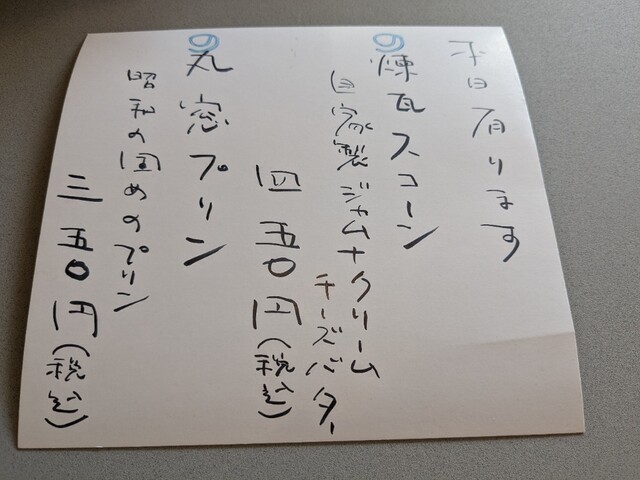 本日有ります
⑨煉瓦スコーン
自家製ジャム+クリーム
チーズバター
四五〇円(税込)
⑨丸窓プリン
昭和の固めのプリン
三五〇円(税込)